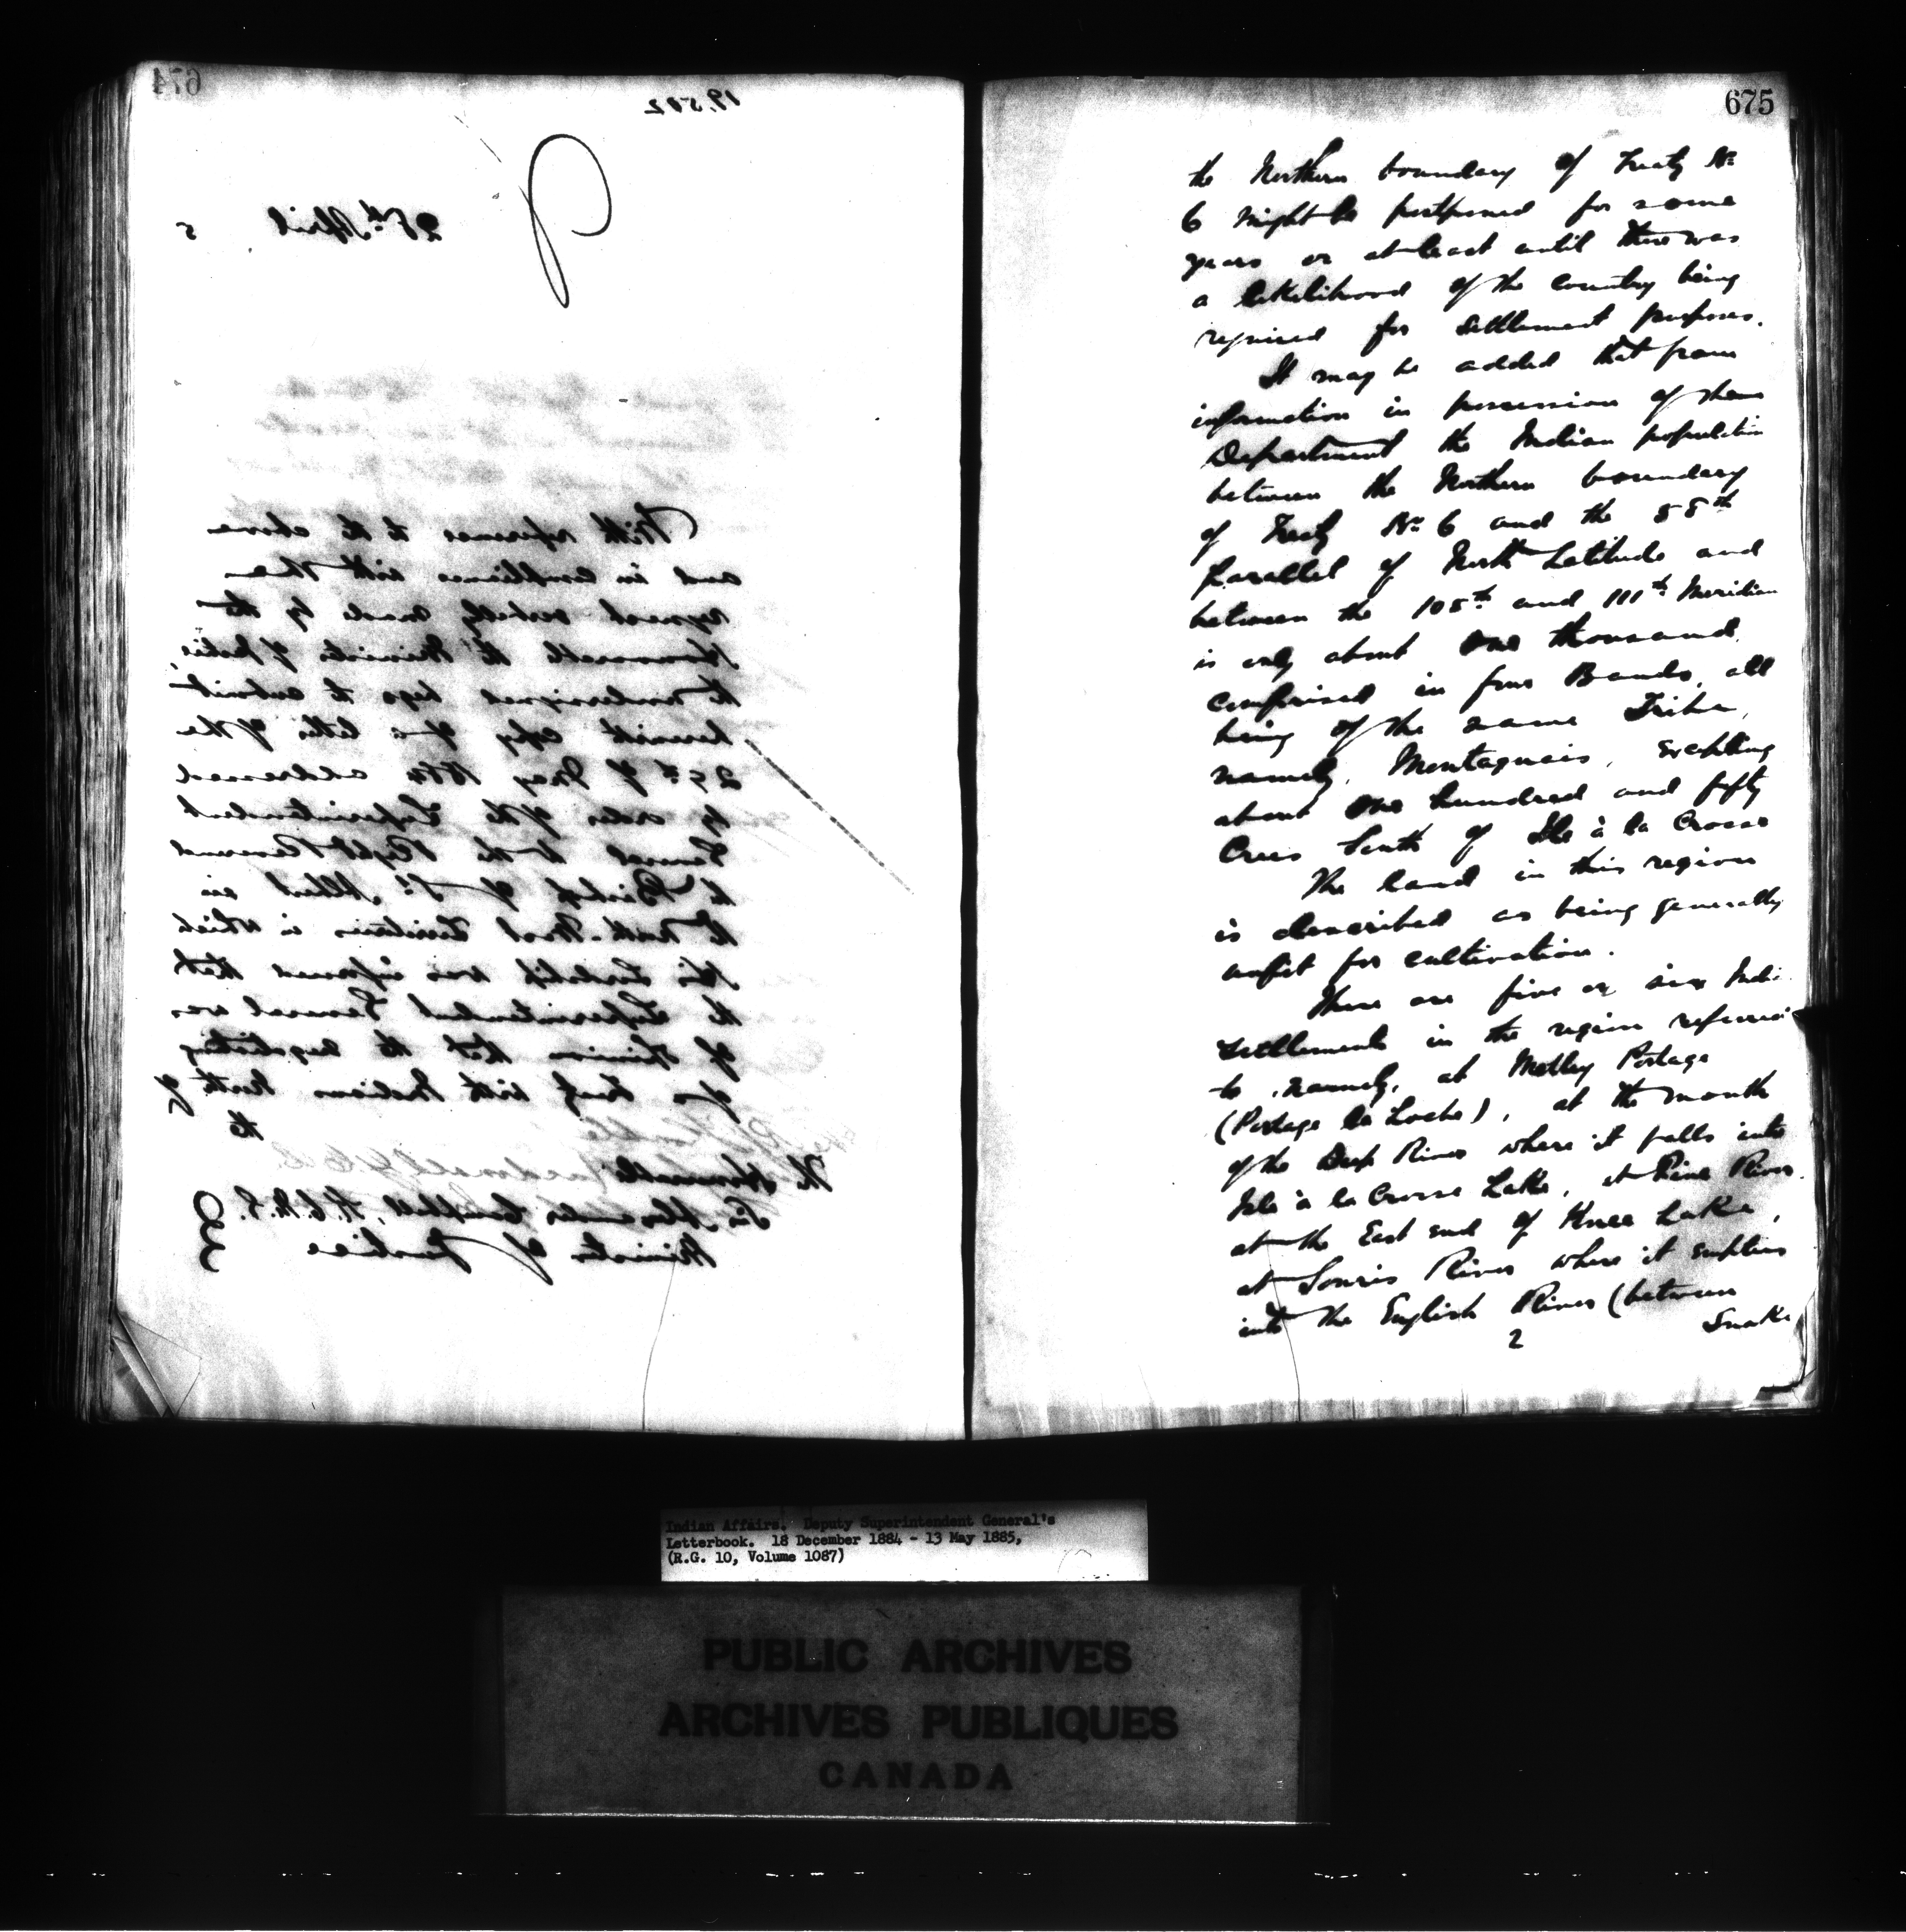 674
19.502
28th April 5
With reference to the above
and in compliance with the
request verbally made by the
Honourable the Minister of Justice,
the undersigned begs to submit
herewith copy of a letter of the
29th of May 1884 addressed
by order of the Superintendent
General to the Right Reverend
the Bishop of St. Albert in
the North-West Territories in which
His Lordship was informed that
the Superintendent General was
of opinion that the negotiating
of a Treaty with Indians North of
the
The Honourable
Sir Alexander Campbell, K.C.M.G.
Minister of Justice
675
the Northern boundary of Treaty No.
6 might be postponed for some
years or at least until there was
a likelihood of the country being
required for settlement purposes.
It may be added that from
information in possession of the
Department the Indian population
between the Northern boundary
of Treaty No. 6 and the 58th
parallel of North Latitude and
between the 108th and 111th Meridian
is only about one thousand,
comprised in four Bands, all
being of the same Tribe,
namely, Montagnais, excepting
about one hundred and fifty
Crees South of Ile à la Crosse
The land in this region
is described as being generally
unfit for cultivation.
There are five or six Indi
settlements in the region referred
to, namely, at Methy Portage
(Portage la Loche), at the mouth
of the Deep River where it falls into
Isle à la Crosse Lake, at Pine River
at the East end of Knee Lake,
at Souris River where it empties
into the English River (between
2 Snake
Indian Affairs. Deputy Superintendent General's
Letterbook. 18 December 1884 - 13 May 1885,
(R.G. 10, Volume 1087)
PUBLIC ARCHIVES
ARCHIVES PUBLIQUES
CANADA